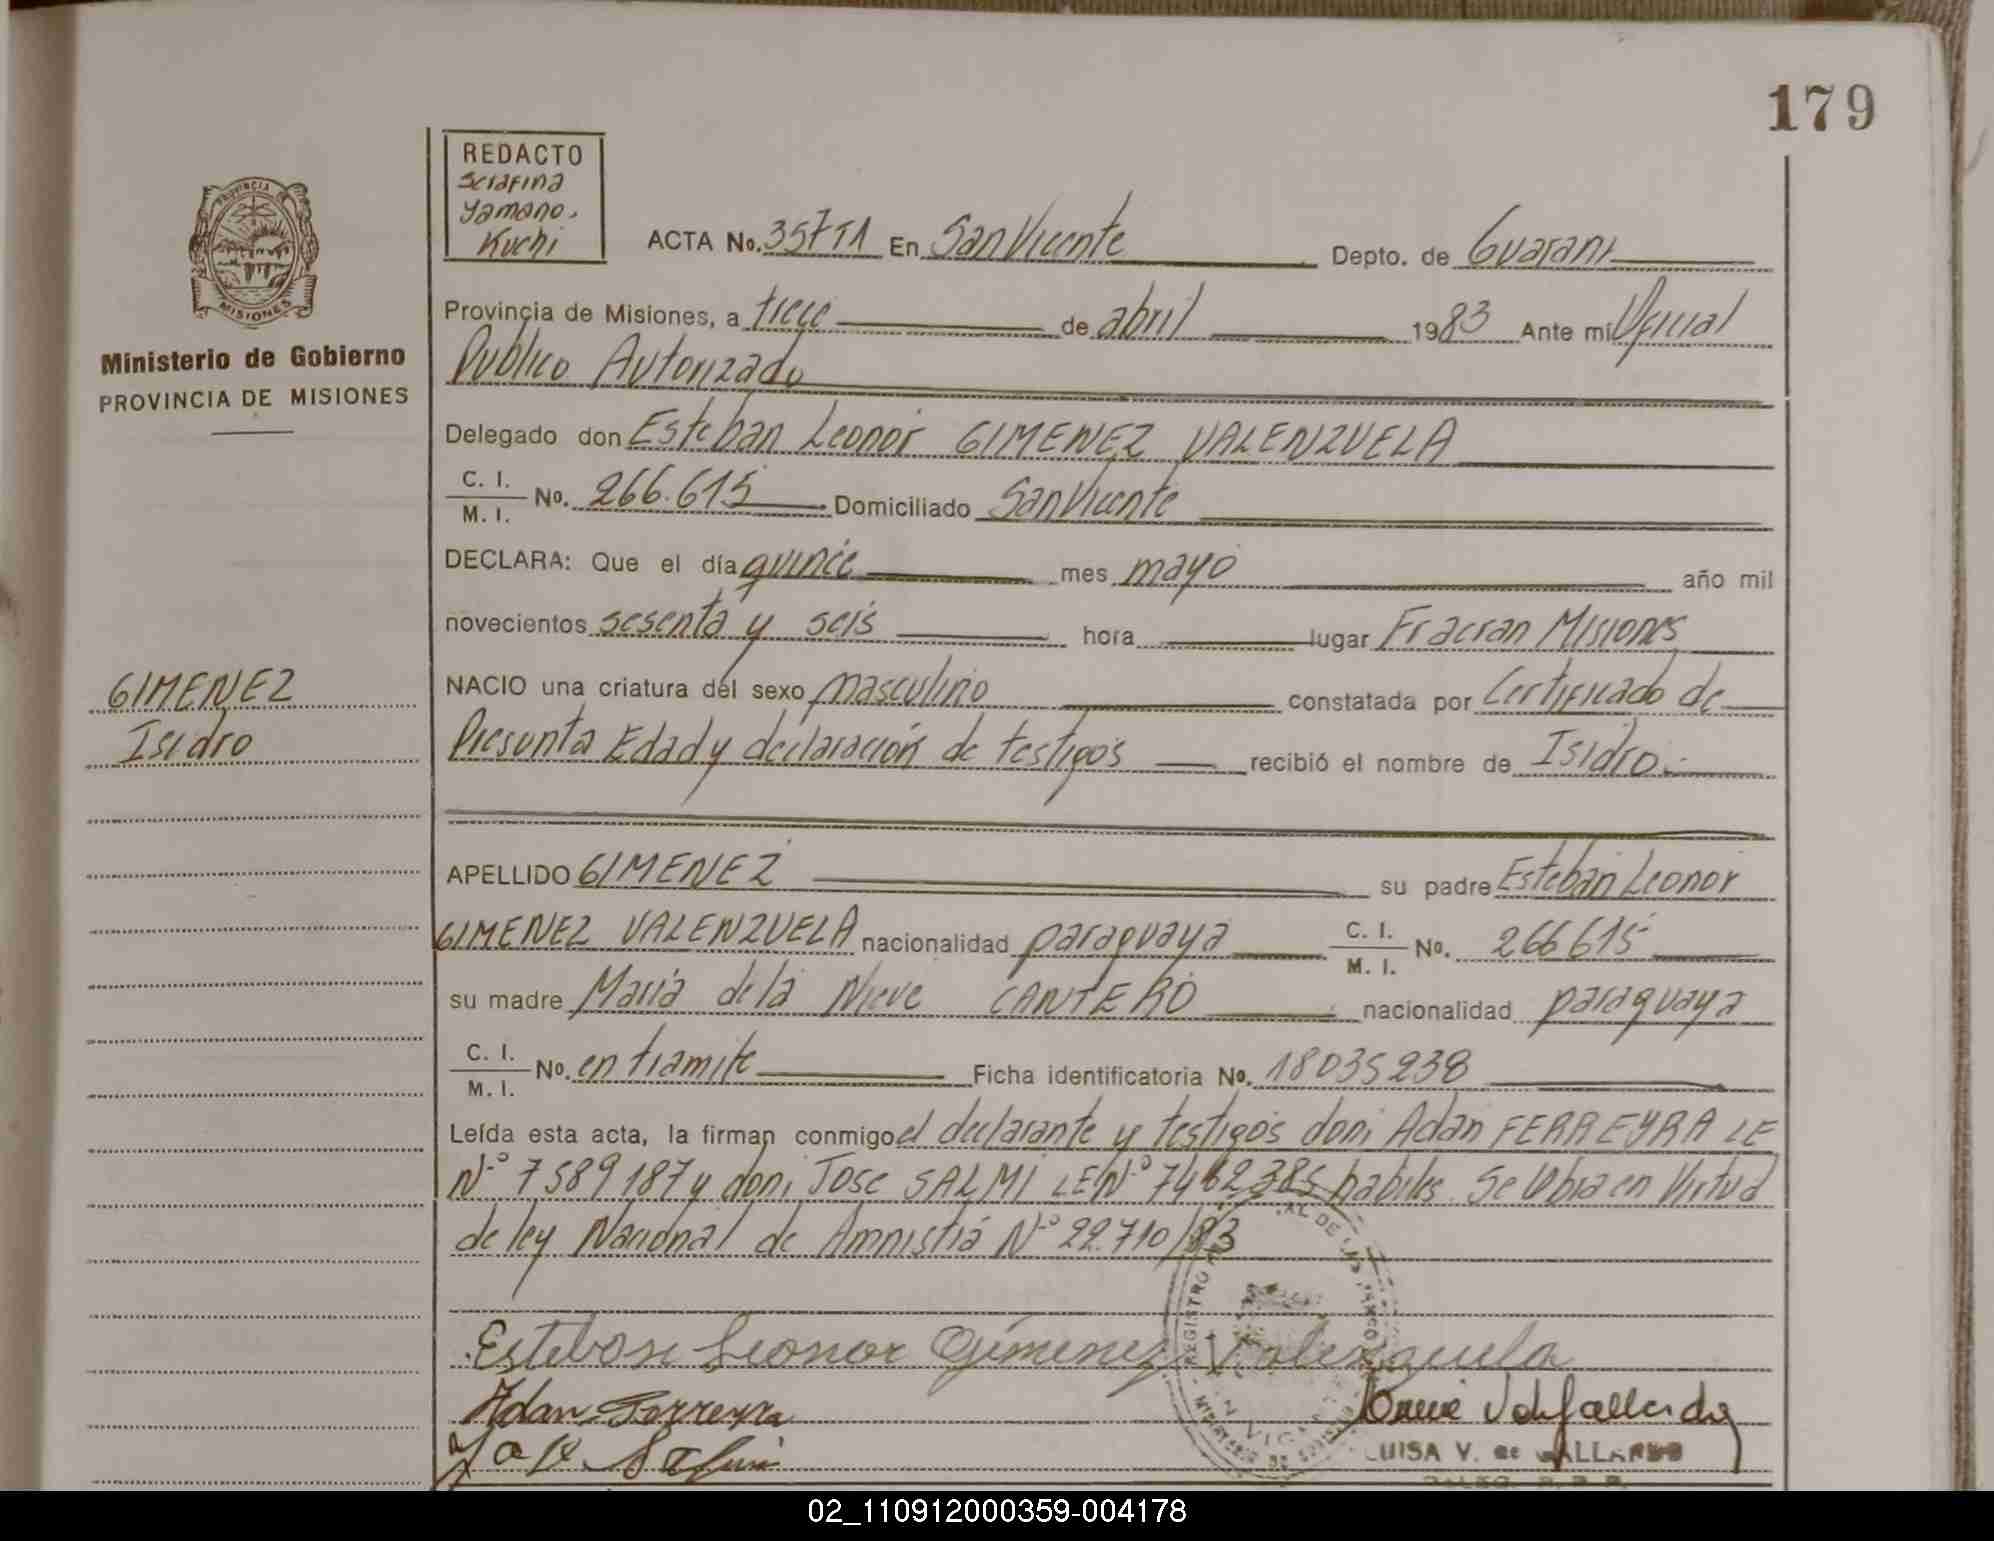 179
REDACTO
Serafina
Yamano.
Kuchi
PROVINCIA DE
MISIONES
Ministerio de Gobierno
PROVINCIA DE MISIONES
ACTA No. 357T1 En San Vicente Depto. de Guarani
Provincia de Misiones, a trece de abril 1983 Ante mi Oficial
Publico Autorizado
Delegado don Esteban Leonor GIMENEZ VALENZUELA
C. I.
M. I. No. 266.615 Domiciliado San Vicente
DECLARA: Que el día quince mes mayo año mil
novecientos sesenta y seis hora lugar Fracran Misiones
GIMENEZ
Isidro
NACIO una criatura del sexo masculino constatada por Certificado de
Presunta Edad y declaración de testigos recibió el nombre de Isidro.-
APELLIDO GIMENEZ su padre Esteban Leonor
GIMENEZ VALENZUELA nacionalidad paraguaya C. I. M. I. No. 266615
su madre Maria de la Nieve CANTERO nacionalidad paraguaya
C. I.
M. I. No. en tramite Ficha identificatoria No. 18035238
Leída esta acta, la firman conmigo el declarante y testigos don: Adan FERREYRA LE
Nº 7589187 y don: Jose SALMI LE Nº 7462385 habiles. Se labra en Virtud
de ley Nacional de Amnistiá Nº 22.710/83
Esteban Leonor Gimenez Valenzuela
Adan Ferreyra
LUISA V. de GALLARDO
02_110912000359-004178